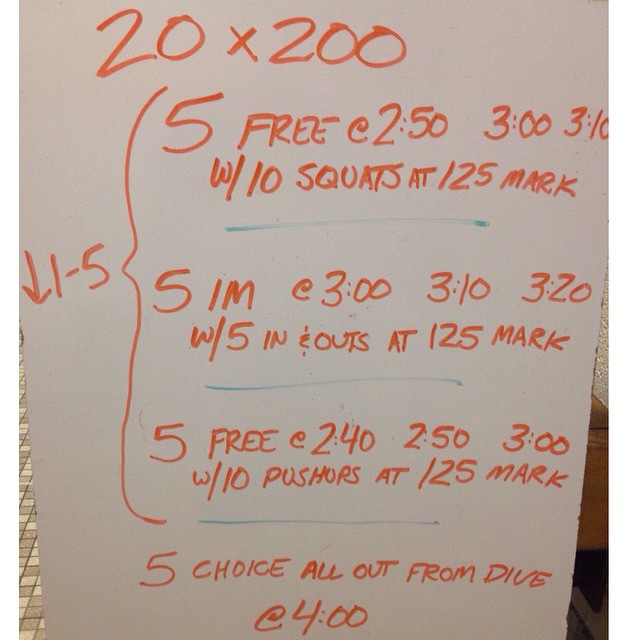 20 x 200
5 FREE @ 2:50 3:00 3:10
W/10 SQUATS AT 125 MARK
↓1-5
5 IM @ 3:00 3:10 3:20
W/5 IN & OUTS AT 125 MARK
5 FREE @ 2:40 2:50 3:00
W/10 PUSHUPS AT 125 MARK
5 CHOICE ALL OUT FROM DIVE
@ 4:00